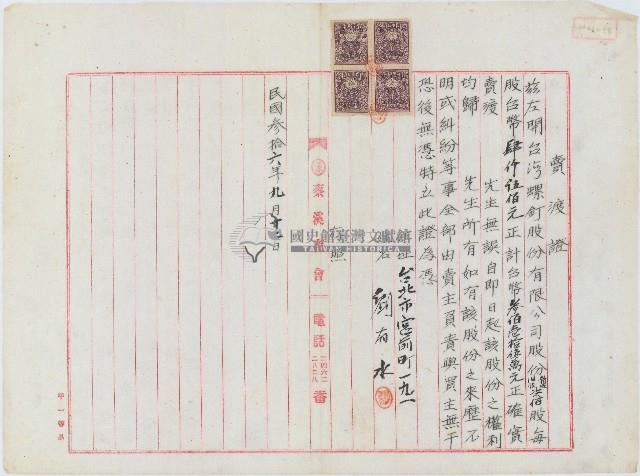 賣渡證
茲左開台灣螺釘股份有限公司股份 柒佰股每
股台幣肆仟伍佰元正計台幣參佰 拾 萬元正確實
賣渡 先生無誤自即日起該股份之權利
均歸 先生所有如有該股份之來歷不
明或糾紛等事全部由賣主負責與買主無干
恐後無憑特立此證為憑
台北市宮前町一九一
劉有水
照
會 電話 番
民國參拾六年九月十 日
國史館臺灣文獻館
TAIWAN HISTORICA